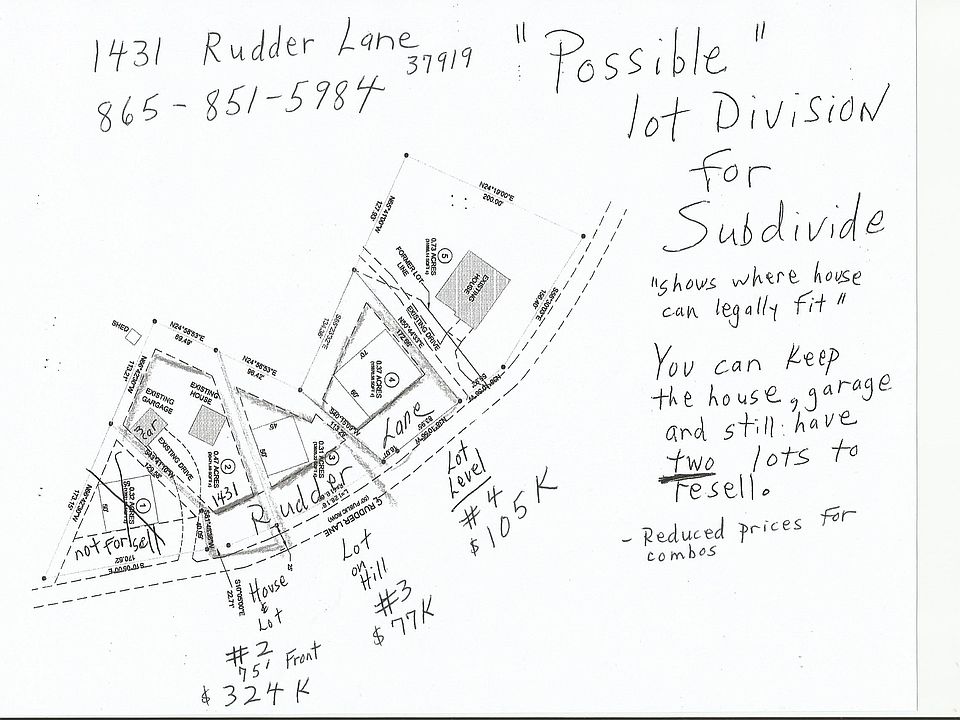 1431 Rudder Lane
37919
865-851-5984
"Possible"
lot Division
for
Subdivide
"shows where house
can legally fit"
You can keep
the house, garage
and still have
two lots to
resell.
- Reduced prices for
combos
N24°19'00"E
200.00'
5
0.73 ACRES
FORMER LOT
LINE
EXISTING
HOUSE
EXISTING DRIVE
4
0.37 ACRES
70'
60'
SHED
N24°56'53"E
69.49'
N24°56'53"E
98.42'
EXISTING
GARGAGE
EXISTING
HOUSE
EXISTING DRIVE
2
0.47 ACRES
1431
3
0.31 ACRES
45'
50'
1
0.32 ACRES
50'
not for sell
170.62
Rudder Lane
RUDDER LANE
(50' PUBLIC ROW)
22.71'
House
&
Lot
#2
75' Front
$324K
Lot
on
Hill
#3
$77K
Lot
Level
#4
$105K